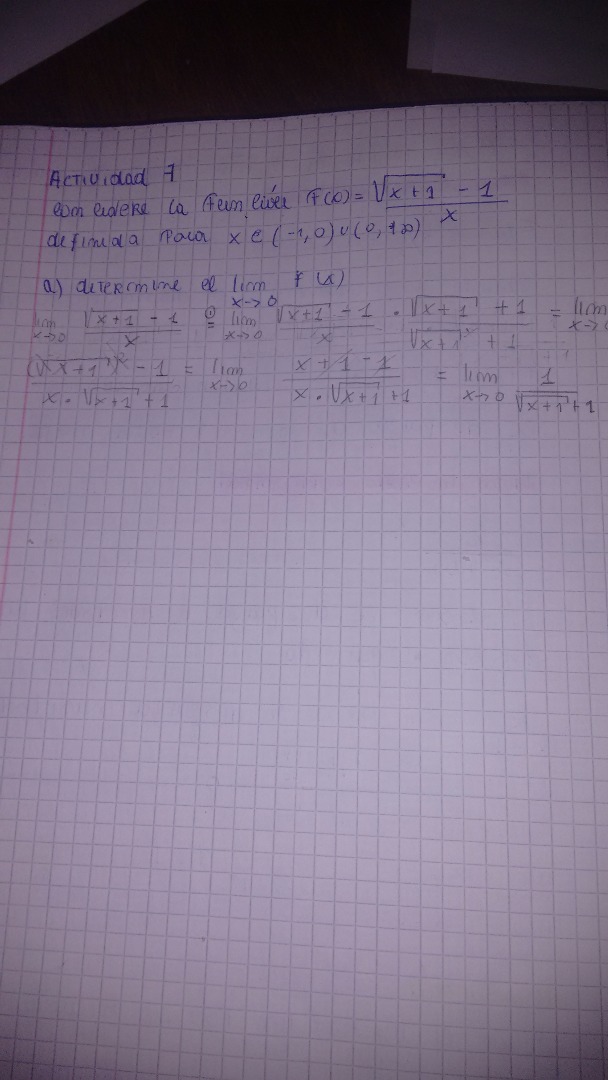 Actividad 7
Considere la función F(x) = √(x+1) - 1 / x
definida para x ∈ (-1, 0) ∪ (0, +∞)
a) determine el lim x→0 f(x)
lim x→0 √(x+1) - 1 / x ① = lim x→0 √(x+1) - 1 / x · √(x+1) + 1 / √(x+1) + 1 = lim x→0
(√(x+1))² - 1 / x · √(x+1) + 1 = lim x→0 x + 1 - 1 / x · √(x+1) + 1 = lim x→0 1 / √(x+1) + 1